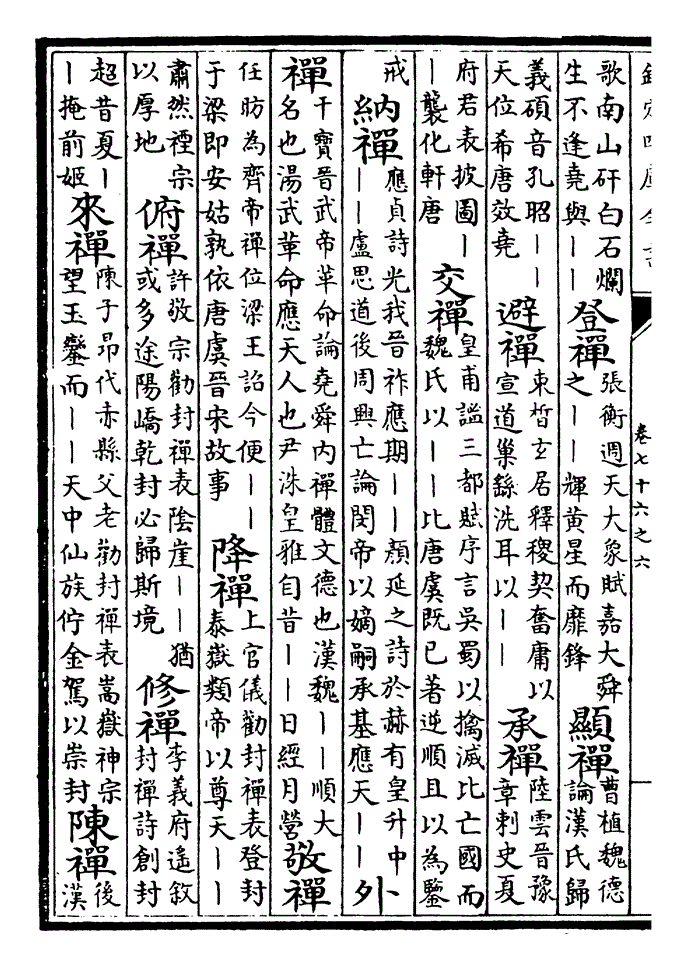 卷七十六之六
歌南山矸白石爛
生不逢堯與丨丨
登禪
張衡週天大象賦嘉大舜
之丨丨輝黃星而靡鋒
顯禪
曹植魏德
論漢氏歸
義碩音孔昭丨丨
天位希唐效堯
避禪
束晳玄居釋稷契奮庸以
宣道巢繇洗耳以丨丨
承禪
陸雲晉豫
章刺史夏
府君表披圖丨
丨襲化軒唐
交禪
皇甫謐三都賦序言吳蜀以擒滅比亡國而
魏氏以丨丨比唐虞既已著逆順且以為鑒
戒
納禪
應貞詩光我晉祚應期丨丨顏延之詩於赫有皇升中
丨丨盧思道後周興亡論閔帝以嫡嗣承基應天丨丨
外
禪
干寶晉武帝革命論堯舜内禪體文德也漢魏丨丨順大
名也湯武革命應天人也尹洙皇雅自昔丨丨日經月營
敬禪
任昉為齊帝禪位梁王詔今便丨丨
于梁即安姑孰依唐虞晉宋故事
降禪
上官儀勸封禪表登封
泰嶽類帝以尊天丨丨
肅然禋宗
以厚地
俯禪
許敬宗勸封禪表陰崖丨丨猶
或多途陽嶠乾封必歸斯境
修禪
李義府遙敘
封禪詩創封
超昔夏丨
丨掩前姬
來禪
陳子昂代赤縣父老勸封禪表嵩嶽神宗
望玉鑾而丨丨天中仙族佇金駕以崇封
陳禪
後
漢